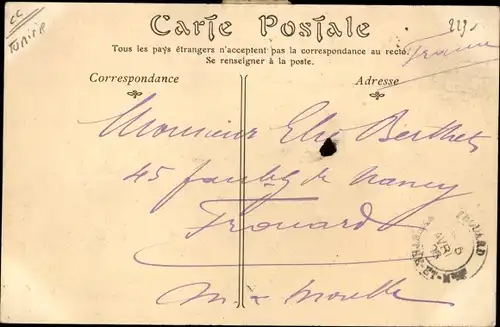 Tunisie
Carte Postale
France
Tous les pays étrangers n'acceptent pas la correspondance au recto.
Se renseigner à la poste.
Correspondance
Adresse
Monsieur Elie Berthet
45 faubg de Nancy
Frouard
M. & Moselle
FROUARD
AVRIL